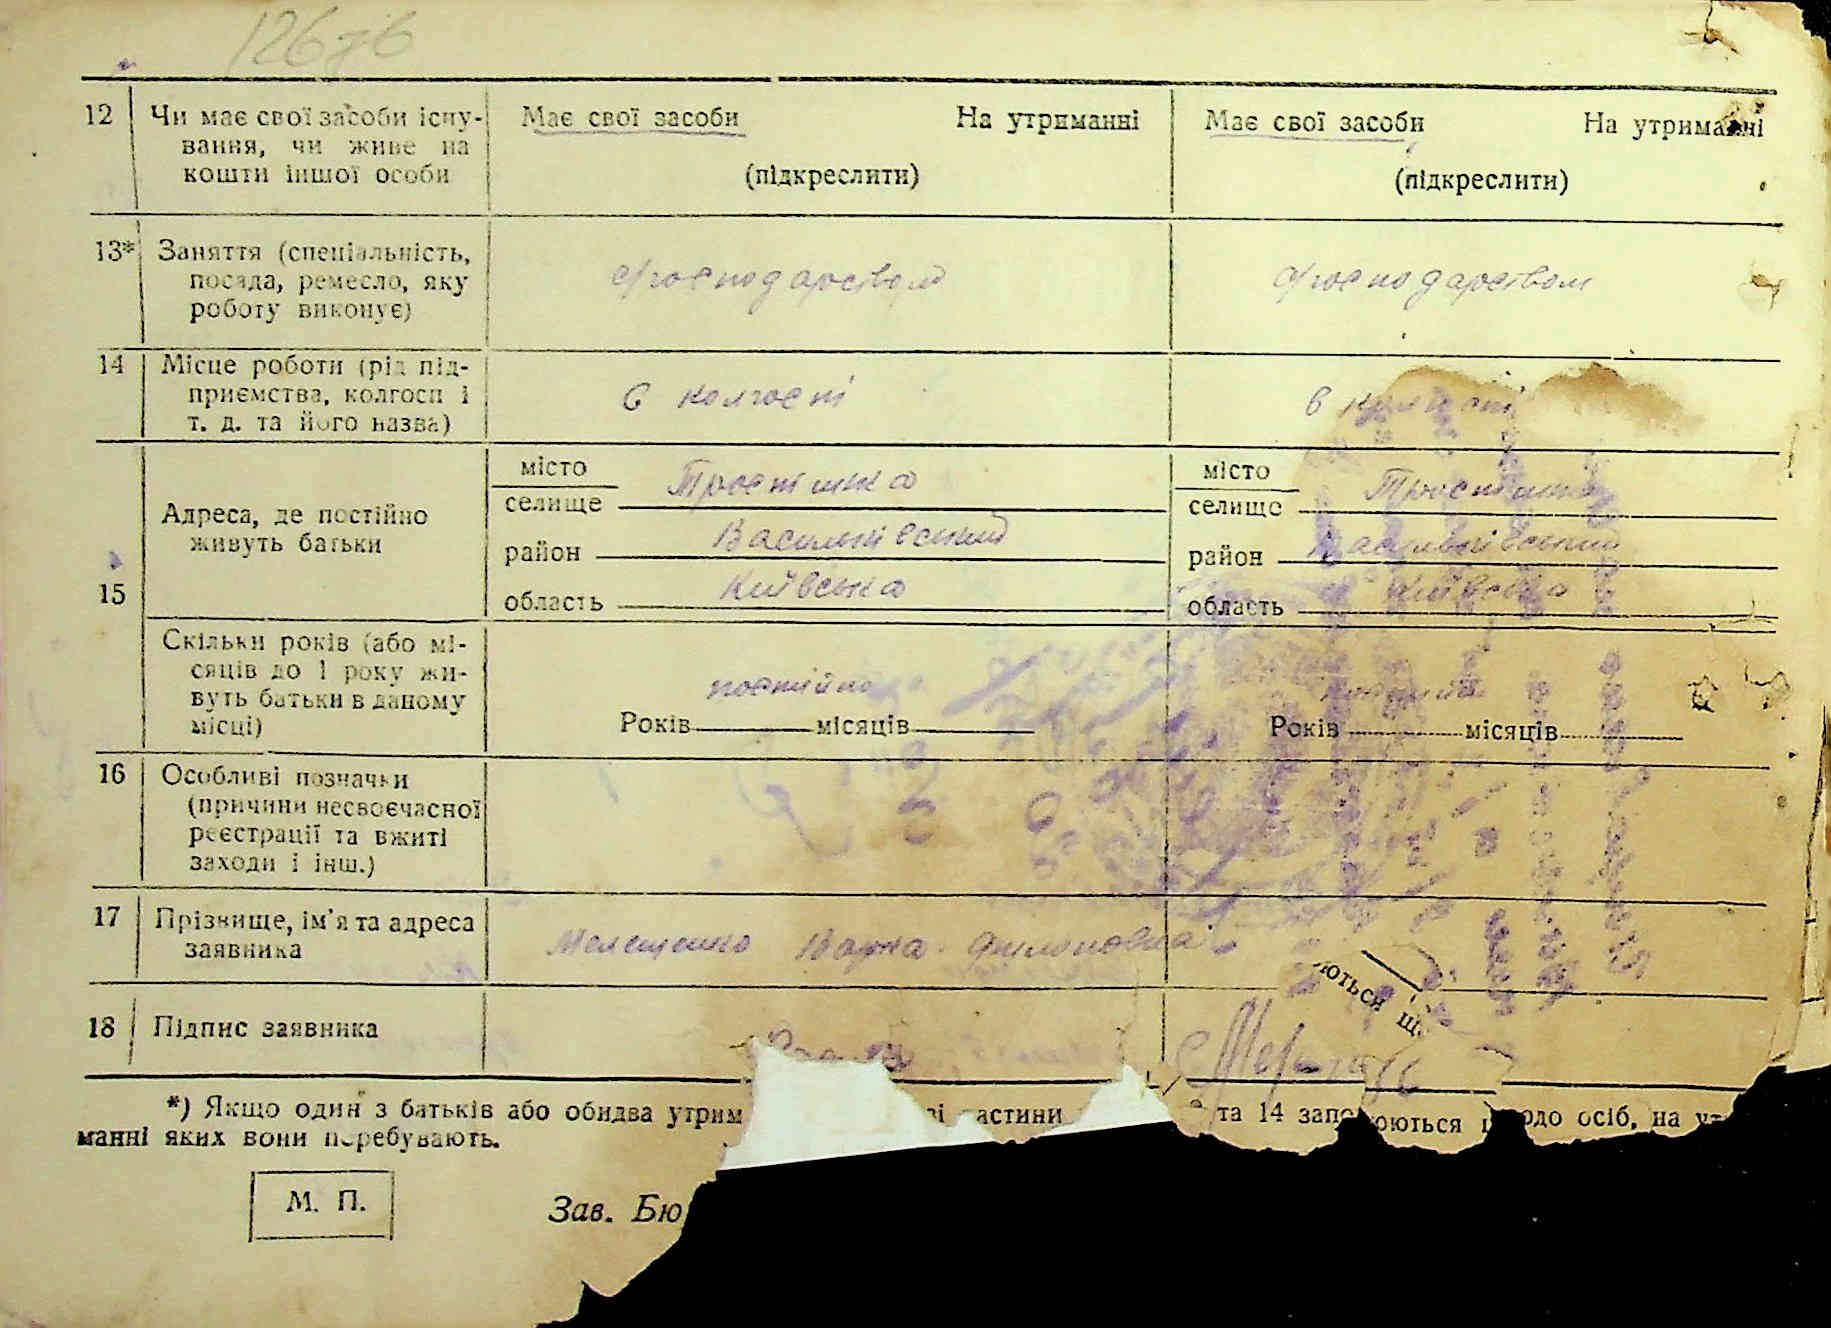 126 зв
12 Чи має свої засоби існу- Має свої засоби На утриманні Має свої засоби На утриманні
вання, чи живе на
кошти іншої особи (підкреслити) (підкреслити)
13* Заняття (спеціальність,
посада, ремесло, яку господарством господарством
роботу виконує)
14 Місце роботи (рід під-
приємства, колгосп і в колгоспі в колгоспі
т. д. та його назва)
15 Адреса, де постійно
живуть батьки
місто
селище Тростинка
район Васильківський
область Київська
місто
селище Тростинка
район Васильківський
область Київська
Скільки років (або мі-
сяців до 1 року жи-
вуть батьки в даному
місці)
постійно
Років місяців
постійно
Років місяців
16 Особливі позначки
(причини несвоєчасної
реєстрації та вжиті
заходи і інш.)
17 Прізвище, ім'я та адреса
заявника Мелещенко Варка
ються щ
18 Підпис заявника
*) Якщо один з батьків або обидва утрим частини та 14 запо юються одо осіб, на ут
манні яких вони перебувають.
М. П. Зав. Бю